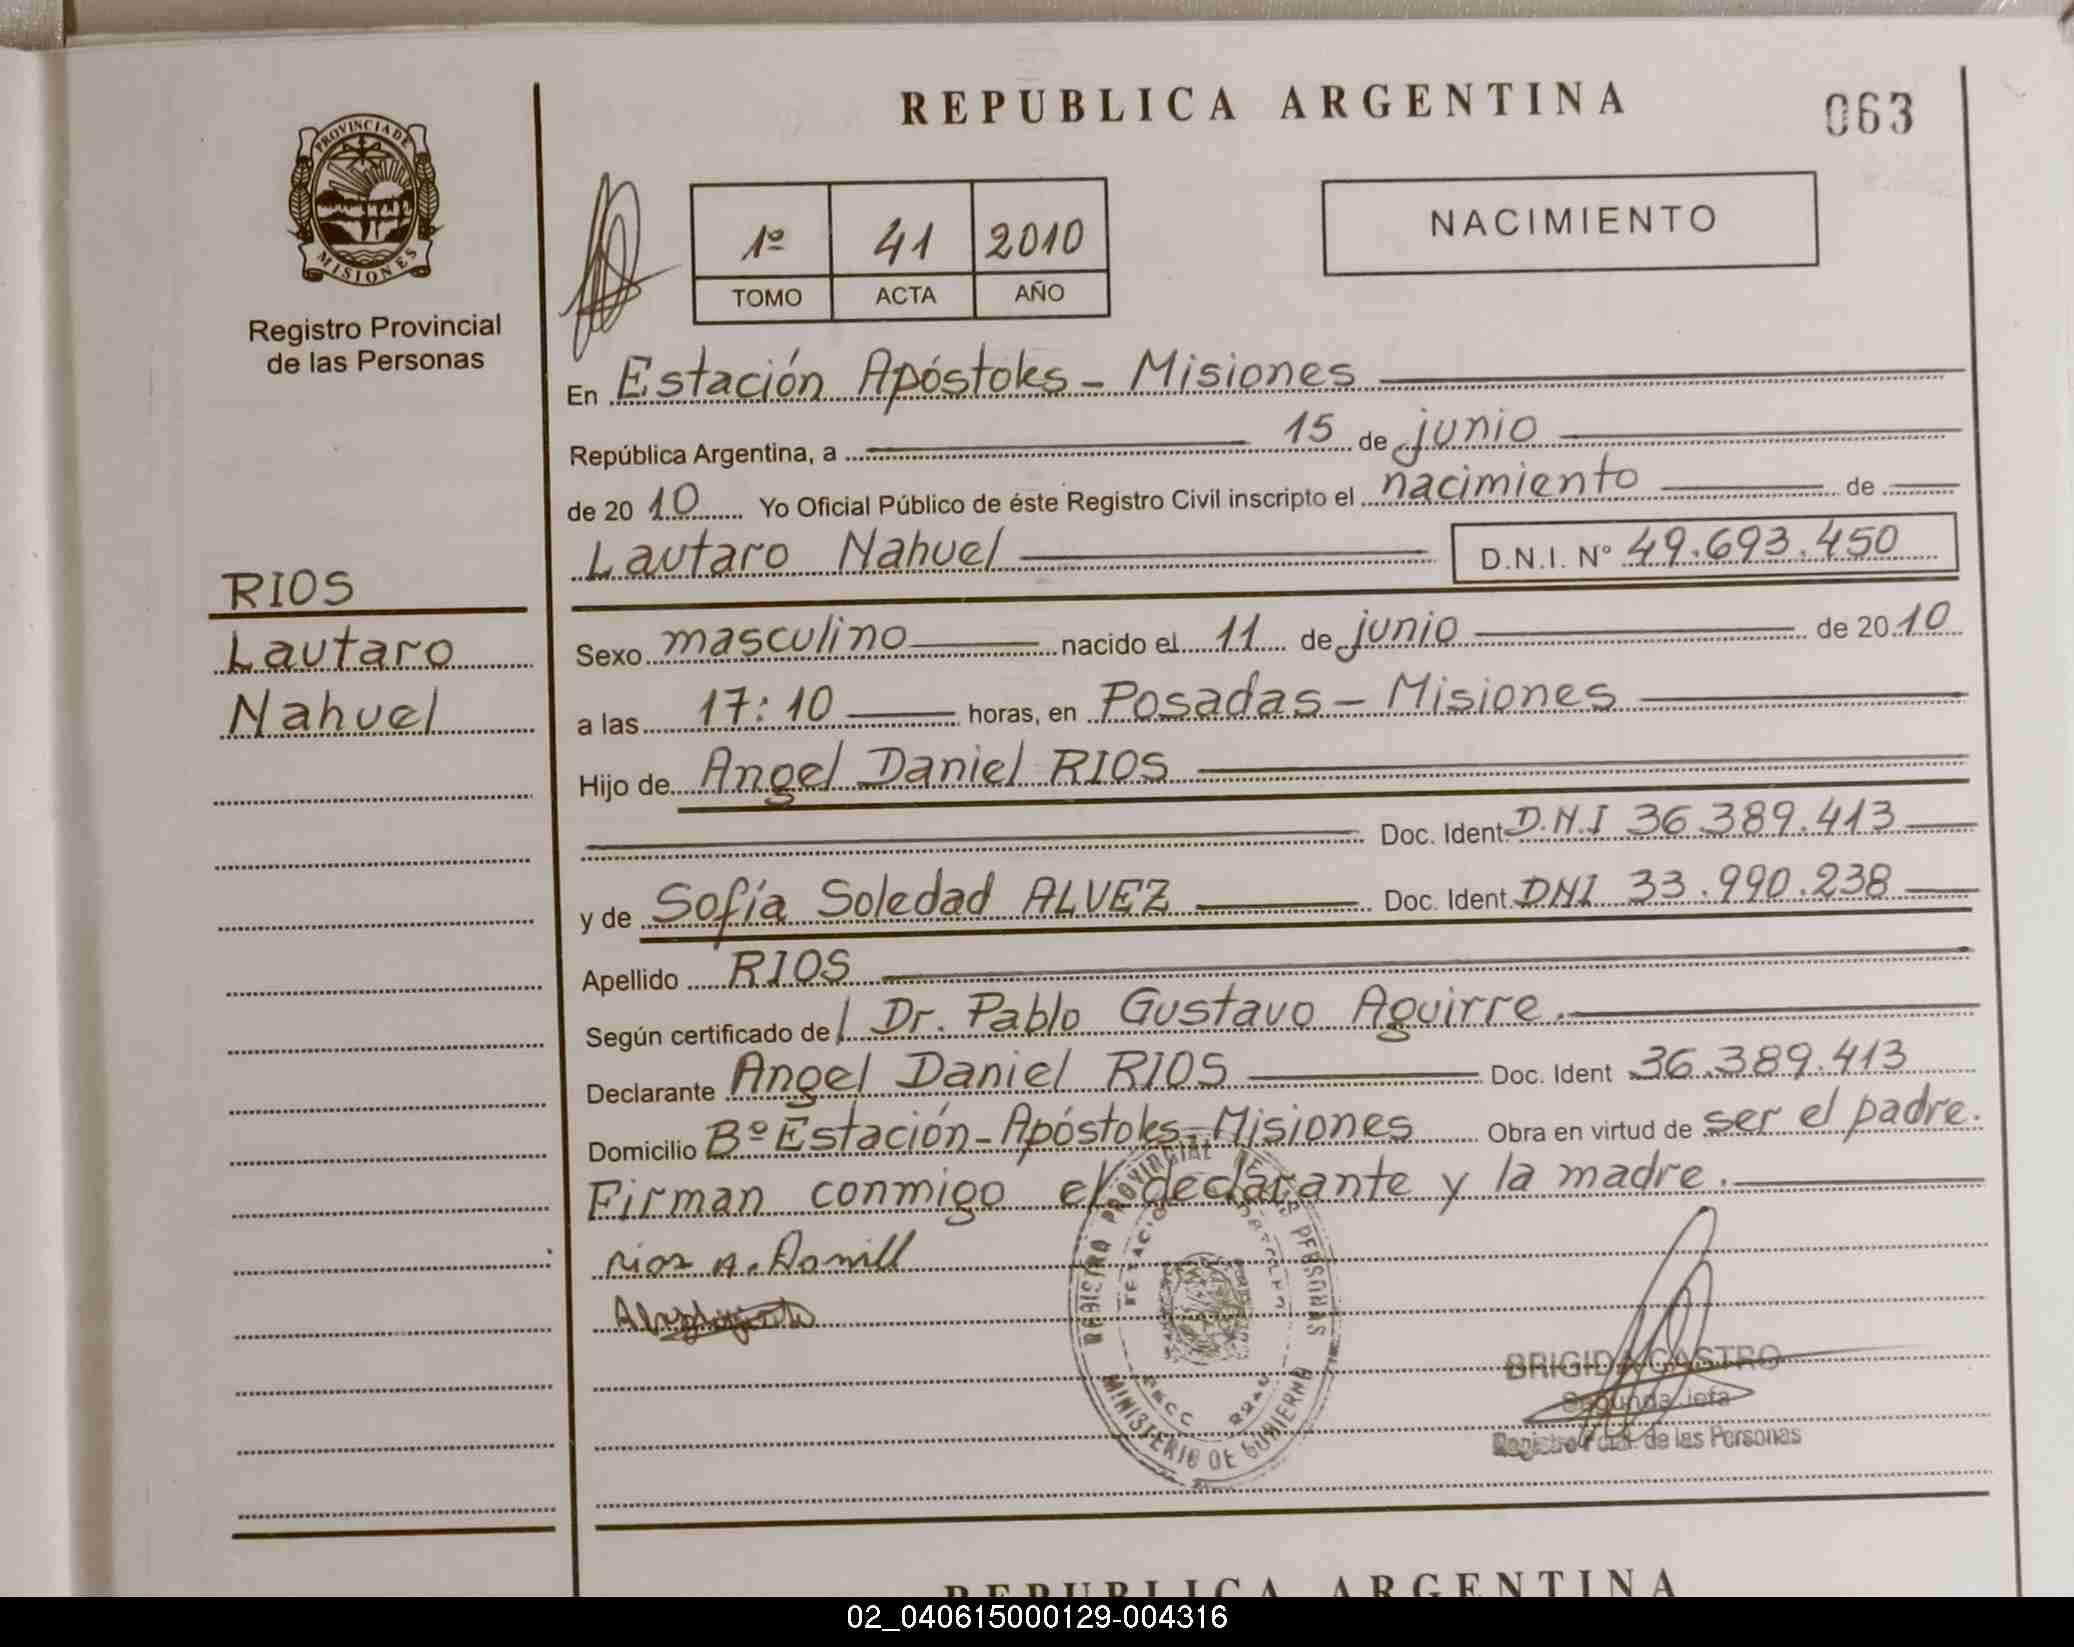 REPUBLICA ARGENTINA
063
PROVINCIA DE
MISIONES
Registro Provincial
de las Personas
1º 41 2010
TOMO ACTA AÑO
NACIMIENTO
En Estación Apóstoles - Misiones
República Argentina, a 15 de junio
de 2010 Yo Oficial Público de éste Registro Civil inscripto el nacimiento de
Lautaro Nahuel D.N.I. Nº 49.693.450
RIOS
Lautaro
Nahuel
Sexo masculino nacido el 11 de junio de 2010
a las 17:10 horas, en Posadas - Misiones
Hijo de Angel Daniel RIOS
Doc. Ident. D.N.I 36.389.413
y de Sofía Soledad ALVEZ Doc. Ident. DNI 33.990.238
Apellido RIOS
Según certificado del Dr. Pablo Gustavo Aguirre.
Declarante Angel Daniel RIOS Doc. Ident 36.389.413
Domicilio Bº Estación - Apóstoles - Misiones Obra en virtud de ser el padre.
Firman conmigo el declarante y la madre.
Rios A.
REGISTRO PROVINCIAL DE LAS PERSONAS
MINISTERIO DE GOBIERNO
BRIGIDA CASTRO
Segunda Jefa
Registro Pcial. de las Personas
REPUBLICA ARGENTINA
02_040615000129-004316